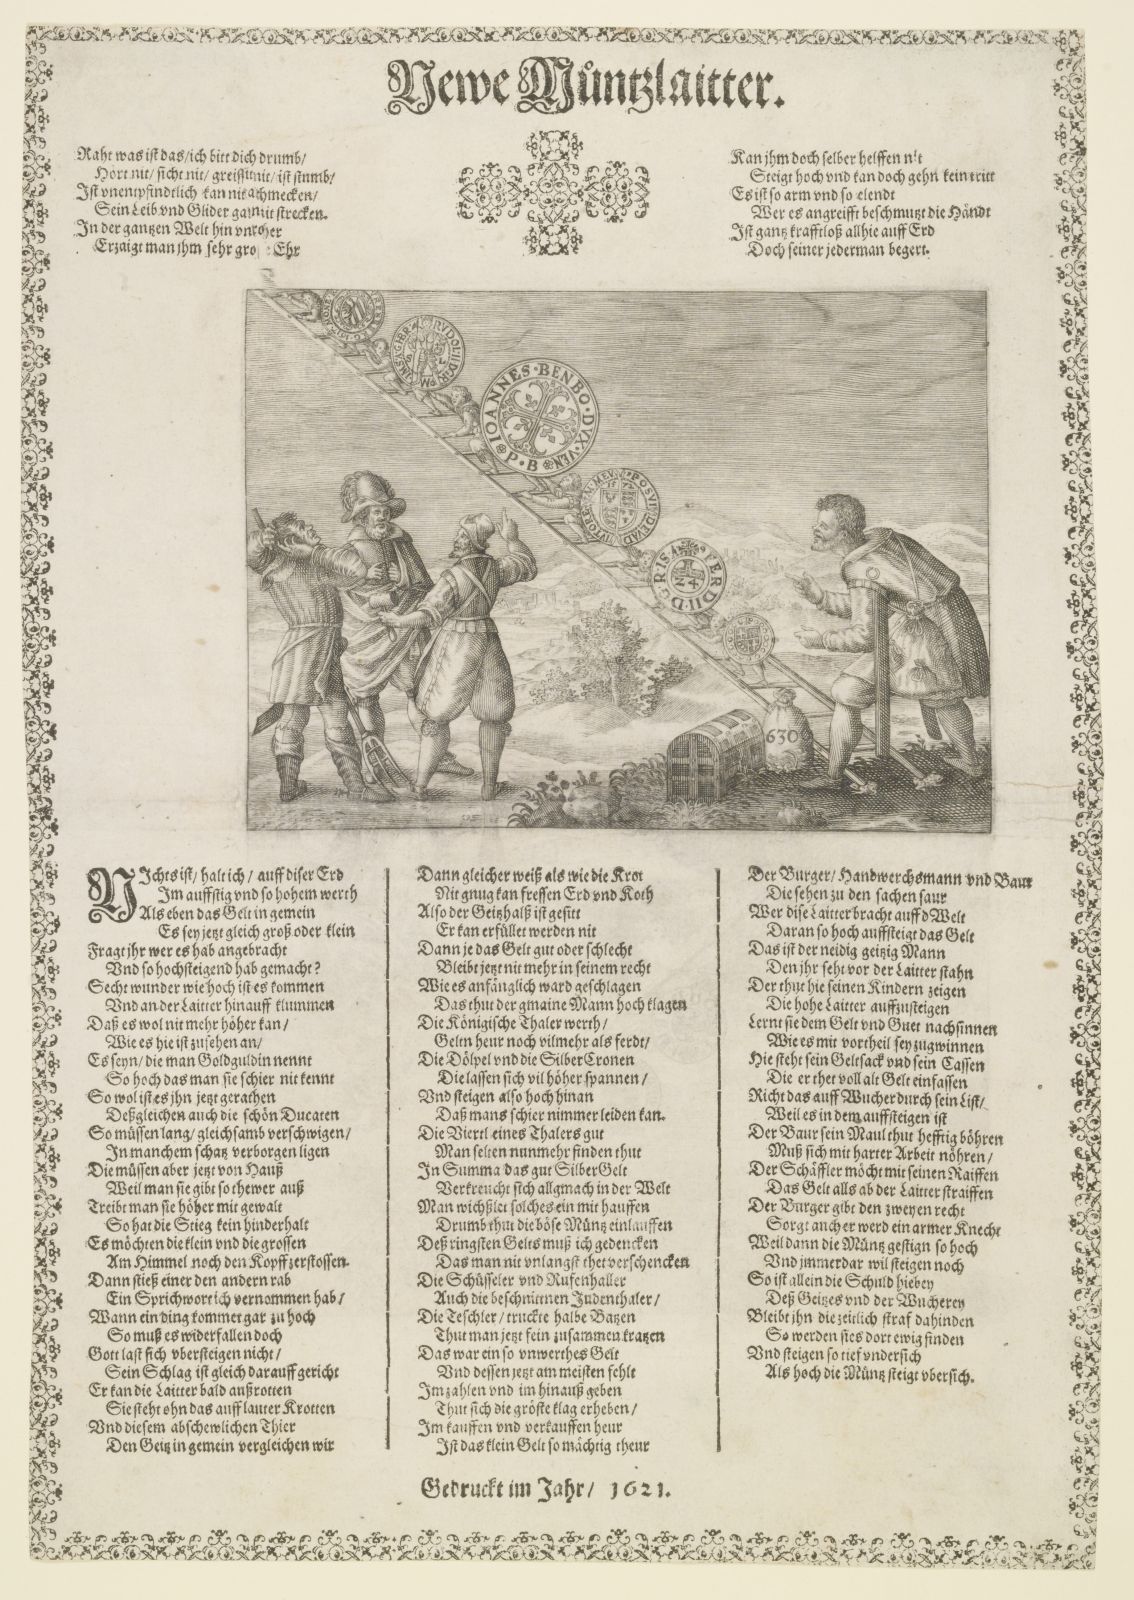 Newe Müntzlaitter.
Raht was ist das/ ich bitt dich drumb/
Hört nit/ sicht nit/ greifft nit/ ist stumb/
Ist vnentpfindtlich kan nit schmecken/
Sein Leib vnd Glider gar nit strecken.
In der gantzen Welt hin vnd her
Erzaigt man jhm sehr grosse Ehr
Kan jhm doch selber helffen nit
Steigt hoch vnd kan doch gehn kein tritt
Es ist so arm vnd so elendt
Wer es angreifft beschmutzt die Händt
Ist gantz krafftloß allhie auff Erd
Doch seiner jederman begert.
RVDOL II D G R
IOANNES · BENBO · DVX · VEN
P · B
POSVI DEVM ADIVTOREM MEVM
FER D II D G RIS A
24
630
NIchts ist/ halt ich/ auff diser Erd
Im auffstig vnd so hohem werth
Als eben das Gelt in gemein
Es sey jetzt gleich groß oder klein
Fragt jhr wer es hab angebracht
Vnd so hochsteigend hab gemacht?
Secht wunder wie hoch ist es kommen
Vnd an der Laitter hinauff klummen
Daß es wol nit mehr höher kan/
Wie es hie ist zusehen an/
Es seyn/ die man Goldguldin nennt
So hoch das man sie schier nit kennt
So wol ist es jhn jetzt gerathen
Deßgleichen auch die schön Ducaten
So müssen lang/ gleichsamb verschwigen/
In manchem schatz verborgen ligen
Die müssen aber jetzt von Hauß
Weil man sie gibt so thewer auß
Treibt man sie höher mit gewalt
So hat die Stieg kein hinderhalt
Es möchten die klein vnd die grossen
Am Himmel noch den Kopff zerstossen.
Dann stieß einer den andern rab
Ein Sprichwort ich vernommen hab/
Wann ein ding kommet gar zu hoch
So muß es widerfallen doch
Gott last sich vbersteigen nicht/
Sein Schlag ist gleich darauff gericht
Er kan die Laitter bald außrotten
Sie steht ohn das auff lauter Krotten
Vnd diesem abschewlichen Thier
Den Geitz in gemein vergleichen wir
Dann gleicher weiß als wie die Krot
Nit gnug kan fressen Erd vnd Koth
Also der Geitzhalß ist gesitt
Er kan erfüllet werden nit
Dann je das Gelt gut oder schlecht
Bleibt jetzt nit mehr in seinem recht
Wie es anfänglich ward geschlagen
Das thut der gmaine Mann hoch klagen
Die Königische Thaler werth/
Geltn heur noch vilmehr als ferdt/
Die Dölpel vnd die SilberCronen
Die lassen sich vil höher spannen/
Vnd steigen also hoch hinan
Daß mans schier nimmer leiden kan.
Die Viertl eines Thalers gut
Man selten nunmehr finden thut
In Summa das gut SilberGelt
Verkreucht sich allgmach in der Welt
Man wichßlet solches ein mit hauffen
Drumb thut die böse Müntz einlauffen
Deß ringsten Gelts muß ich gedencken
Das man nit vnlangst thet verschencken
Die Schüsseler vnd Rufenhaller
Auch die beschnittnen Judenthaler/
Die Teschler/ truckte halbe Batzen
Thut man jetzt fein zusammen kratzen
Das war ein so vnwerthes Gelt
Vnd dessen jetzt am meisten fehlt
Im zahlen vnd im hinauß geben
Thut sich die gröste klag erheben/
Im kauffen vnd verkauffen heur
Ist das klein Gelt so mächtig theur
Der Burger/ Handwerchsmann vnd Baur
Die sehen zu den sachen saur
Wer dise Laitter bracht auff d Welt
Daran so hoch auffsteigt das Gelt
Das ist der neidig geitzig Mann
Den jhr seht vor der Laitter stahn
Der thut hie seinen Kindern zeigen
Die hohe Laitter auffzusteigen
Lernt sie dem Gelt vnd Guet nachsinnen
Wie es mit vortheil sey zugwinnen
Hie steht sein Geltsack vnd sein Cassen
Die er thet voll alt Gelt einfassen
Richt das auff Wucher durch sein List/
Weil es in dem auffsteigen ist
Der Baur sein Maul thut hefftig böhren
Muß sich mit harter Arbeit nöhren/
Der Schäffler möcht mit seinen Raiffen
Das Gelt alls ab der Laitter straiffen
Der Burger gibt den zweyen recht
Sorgt auch er werd ein armer Knecht
Weil dann die Müntz gestign so hoch
Vnd jmmerdar wil steigen noch
So ist allein die Schuld hiebey
Deß Geitzes vnd der Wucherey
Bleibt jhn die zeitlich straf dahinden
So werden sies dort ewig finden
Vnd steigen so tief vndersich
Als hoch die Müntz steigt vbersich.
Gedruckt im Jahr/ 1621.